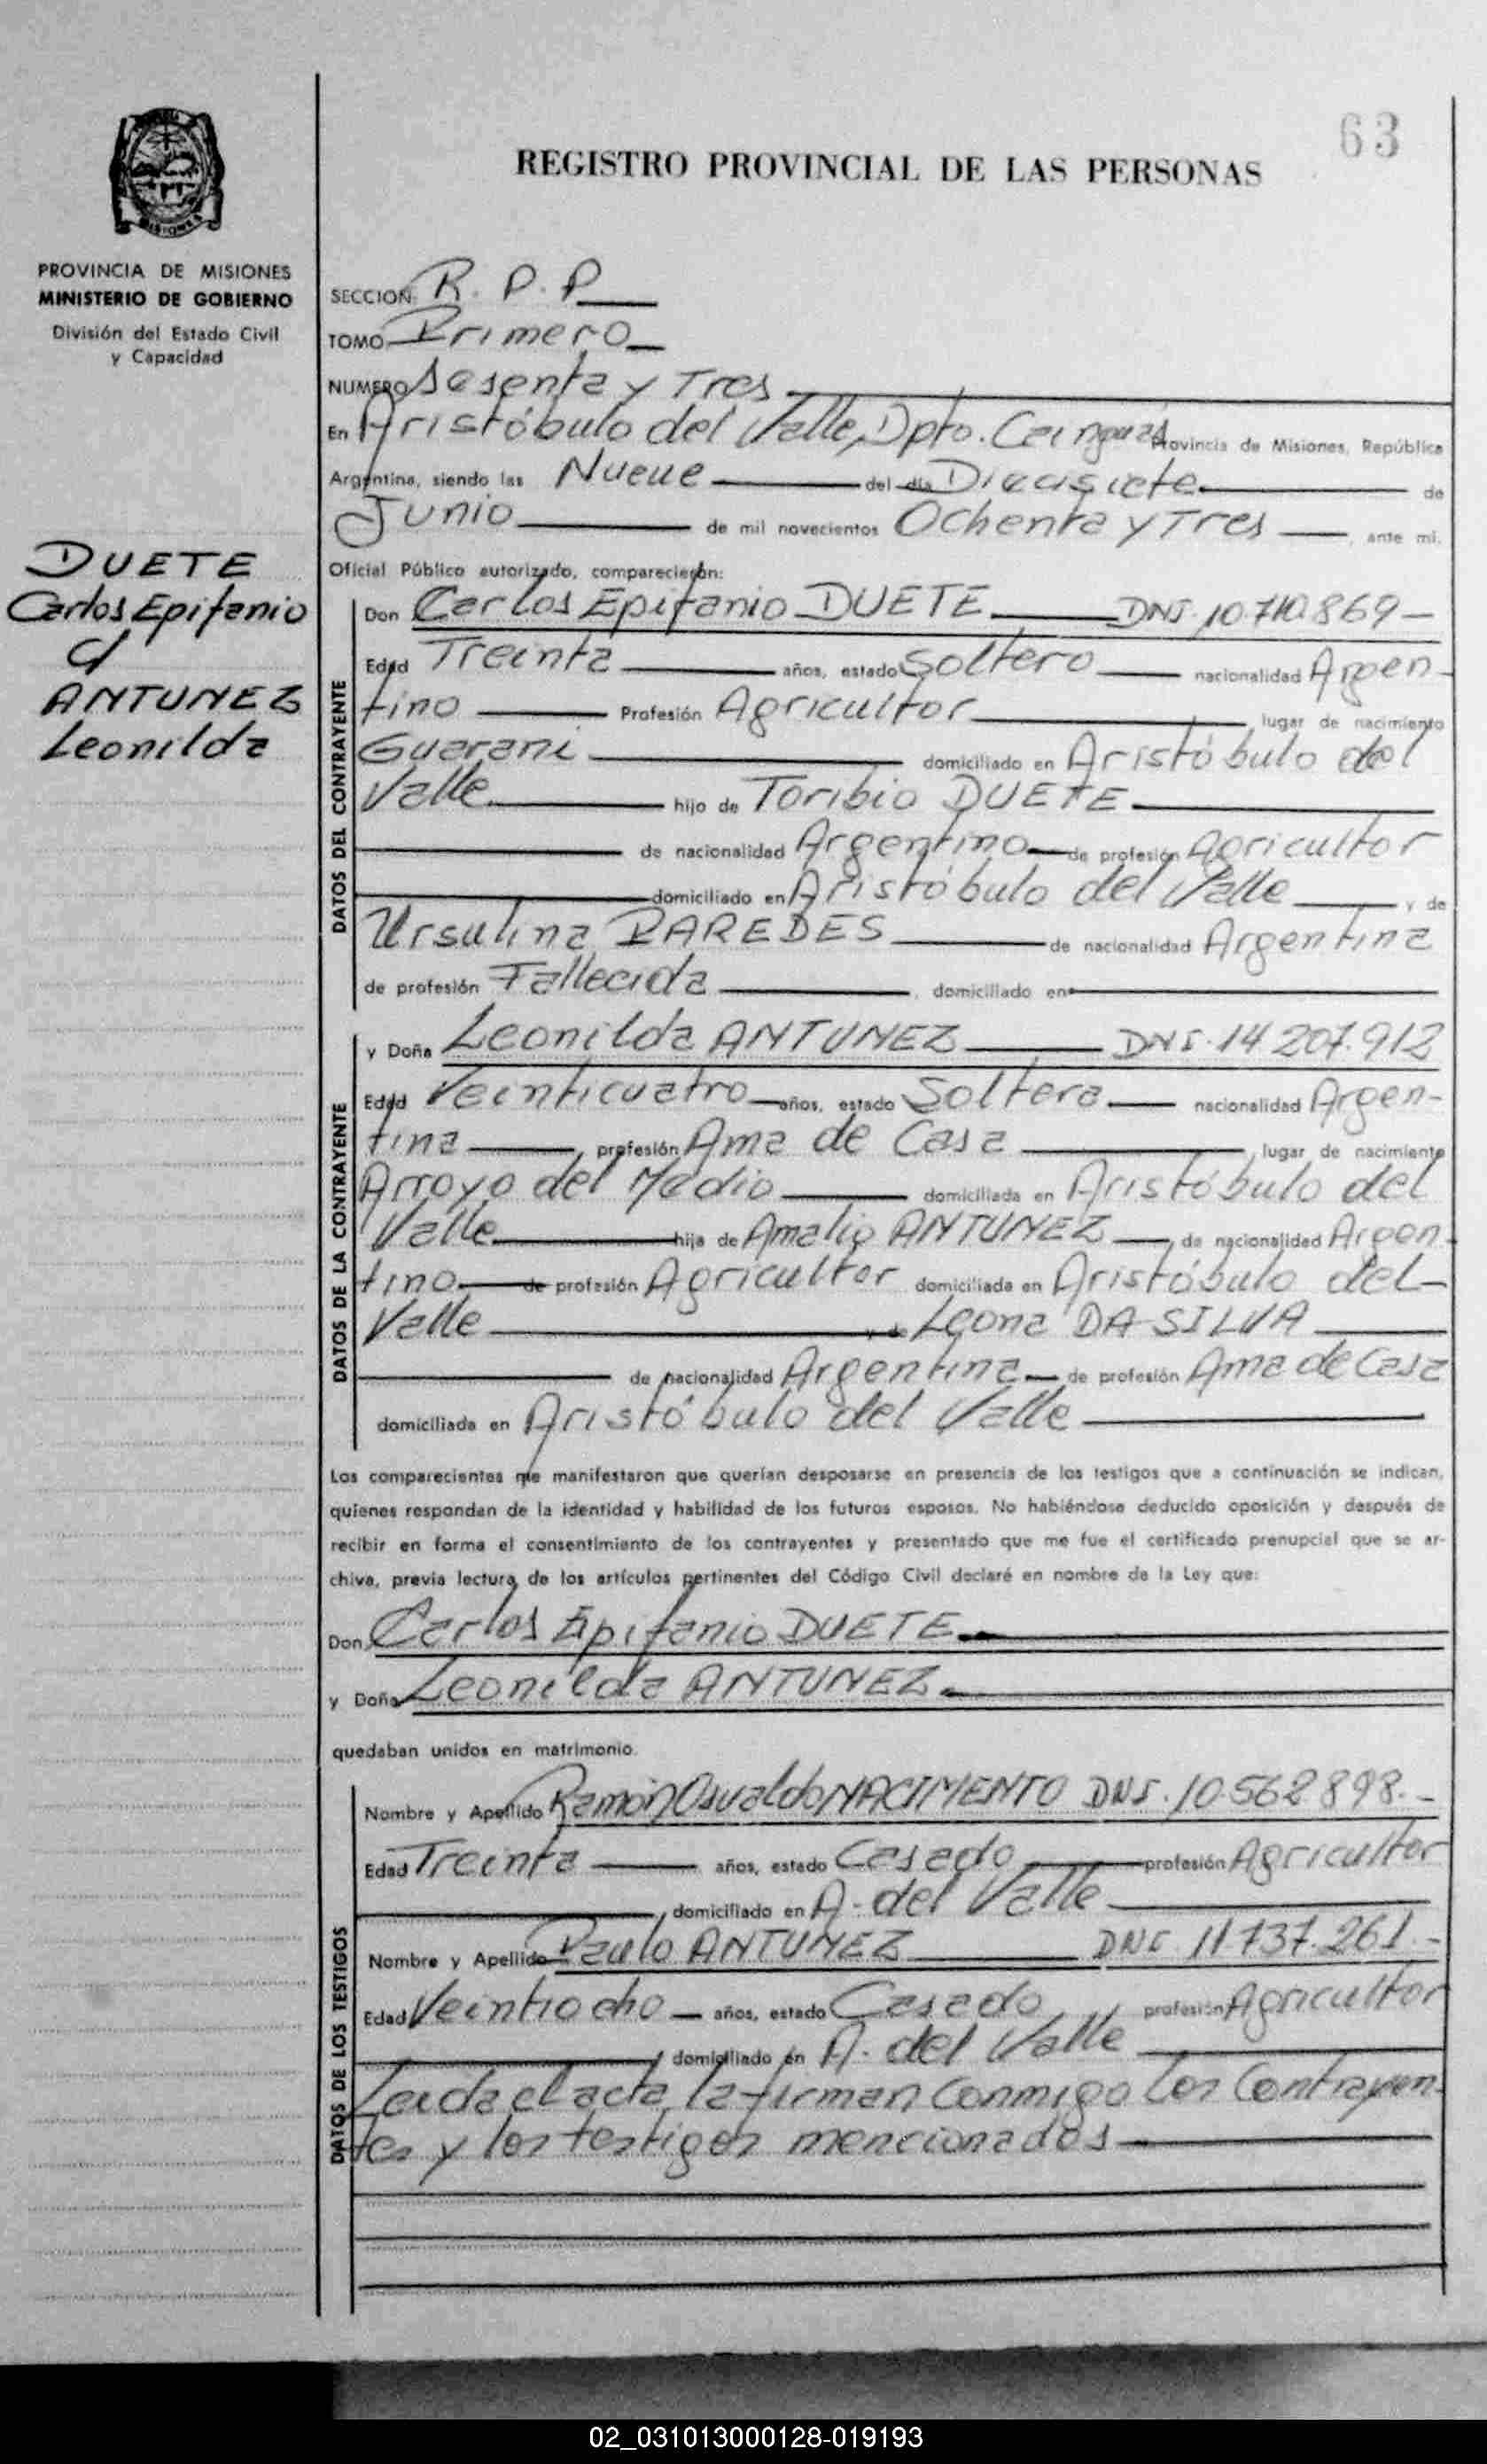 63
REGISTRO PROVINCIAL DE LAS PERSONAS
MISIONES
PROVINCIA DE MISIONES
MINISTERIO DE GOBIERNO
División del Estado Civil
y Capacidad
DUETE
Carlos Epifanio
c/
ANTUNEZ
Leonilda
SECCION R. P. P
TOMO Primero
NUMERO Sesenta y Tres
En Aristóbulo del Valle, Dpto. Cainguás Provincia de Misiones, República
Argentina, siendo las Nueve del día Diecisiete de
Junio de mil novecientos Ochenta y Tres , ante mi,
Oficial Público autorizado, comparecieron:
DATOS DEL CONTRAYENTE
Don Carlos Epifanio DUETE DNI. 10.710.869
Edad Treinta años, estado Soltero nacionalidad Argen-
tino Profesión Agricultor , lugar de nacimiento
Guarani domiciliado en Aristóbulo del
Valle hijo de Toribio DUETE
de nacionalidad Argentino de profesión Agricultor
domiciliado en Aristóbulo del Valle y de
Ursulina PAREDES de nacionalidad Argentina
de profesión Fallecida , domiciliado en
DATOS DE LA CONTRAYENTE
y Doña Leonilda ANTUNEZ DNI. 14.207.912
Edad Veinticuatro años, estado Soltera nacionalidad Argen-
tina , profesión Ama de Casa , lugar de nacimiento
Arroyo del Medio domiciliada en Aristóbulo del
Valle hija de Amalio ANTUNEZ , de nacionalidad Argen-
tino de profesión Agricultor domiciliada en Aristóbulo del
Valle y de Leona DA SILVA
de nacionalidad Argentina de profesión Ama de Casa
domiciliada en Aristóbulo del Valle
Los comparecientes me manifestaron que querían desposarse en presencia de los testigos que a continuación se indican,
quienes respondan de la identidad y habilidad de los futuros esposos. No habiéndose deducido oposición y después de
recibir en forma el consentimiento de los contrayentes y presentado que me fue el certificado prenupcial que se ar-
chiva, previa lectura de los artículos pertinentes del Código Civil declaré en nombre de la Ley que:
Don Carlos Epifanio DUETE
y Doña Leonilda ANTUNEZ
quedaban unidos en matrimonio.
DATOS DE LOS TESTIGOS
Nombre y Apellido Ramón Osvaldo NACIMENTO DNI. 10.562.898.-
Edad Treinta años, estado Casado profesión Agricultor
domiciliado en A. del Valle
Nombre y Apellido Paulo ANTUNEZ DNI 11.737.261.-
Edad Veintiocho años, estado Casado profesión Agricultor
domiciliado en A. del Valle
Leida el acta, la firman conmigo los Contrayen-
tes y los testigos mencionados
02_031013000128-019193